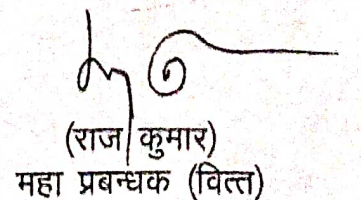 (राज कुमार)
महा प्रबन्धक (वित्त)